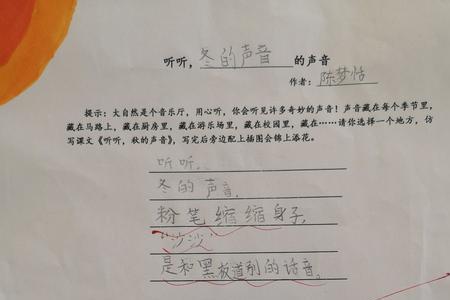 听听，冬的声音的声音
作者：陈梦恬
提示：大自然是个音乐厅，用心听，你会听见许多奇妙的声音！声音藏在每个季节里，
藏在马路上，藏在厨房里，藏在游乐场里，藏在校园里，藏在……请你选择一个地方，仿
写课文《听听，秋的声音》，写完后旁边配上插图会锦上添花。
听听，
冬的声音，
粉笔缩缩身子，
“沙沙”
是和黑板道别的话音。